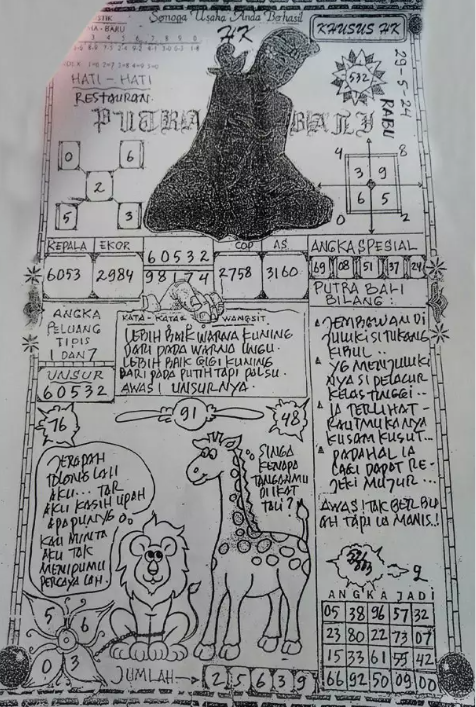 Semoga Usaha Anda Berhasil
HK
KHUSUS HK
29-5-24
RABU
532
HATI-HATI
RESTAURAN.
PUTRA BALI
0 6
2
5 3
4 8
3 9
6 5
0 2
KEPALA EKOR 60532 COP AS ANGKA SPESIAL
6053 2984 98174 2758 3160 69 08 51 37 24
ANGKA
PELUANG
TIPIS
1 DAN 7
UNSUR
60532
KATA-KATA WANGSIT
LEBIH BAIK WARNA KUNING
DARI PADA WARNA UNGU.
LEBIH BAIK GIGI KUNING
DARI PADA PUTIH TAPI PALSU.
AWAS! UNSURNYA.
PUTRA BALI
BILANG:
JEMBAWAN DI
JULUKI SI TUKANG
KIBUL..
YG MENJULUKI
NYA SI PELACUR
KELAS TINGGI..
IA TERLIHAT
RAUT MUKANYA
KUSAM KUSUT...
PADAHAL IA
LAGI DAPAT RE-
JEKI MUJUR...
TAPI IA MANIS.!
76
91
48
JERAPAH
TOLONG LAH
AKU... TAR
AKU KASIH UPAH
APA PUNYG
KAU MINTA
AKU TAK
MENIPUMU
PERCAYA LAH.
SINGA
KENAPA
TANGANMU
DI IKAT
TALI?
2
ANGKA JADI
05 38 96 57 32
23 80 22 73 07
15 33 61 55 42
66 92 50 09 00
5 6
0 3
JUMLAH 2 5 6 3 9